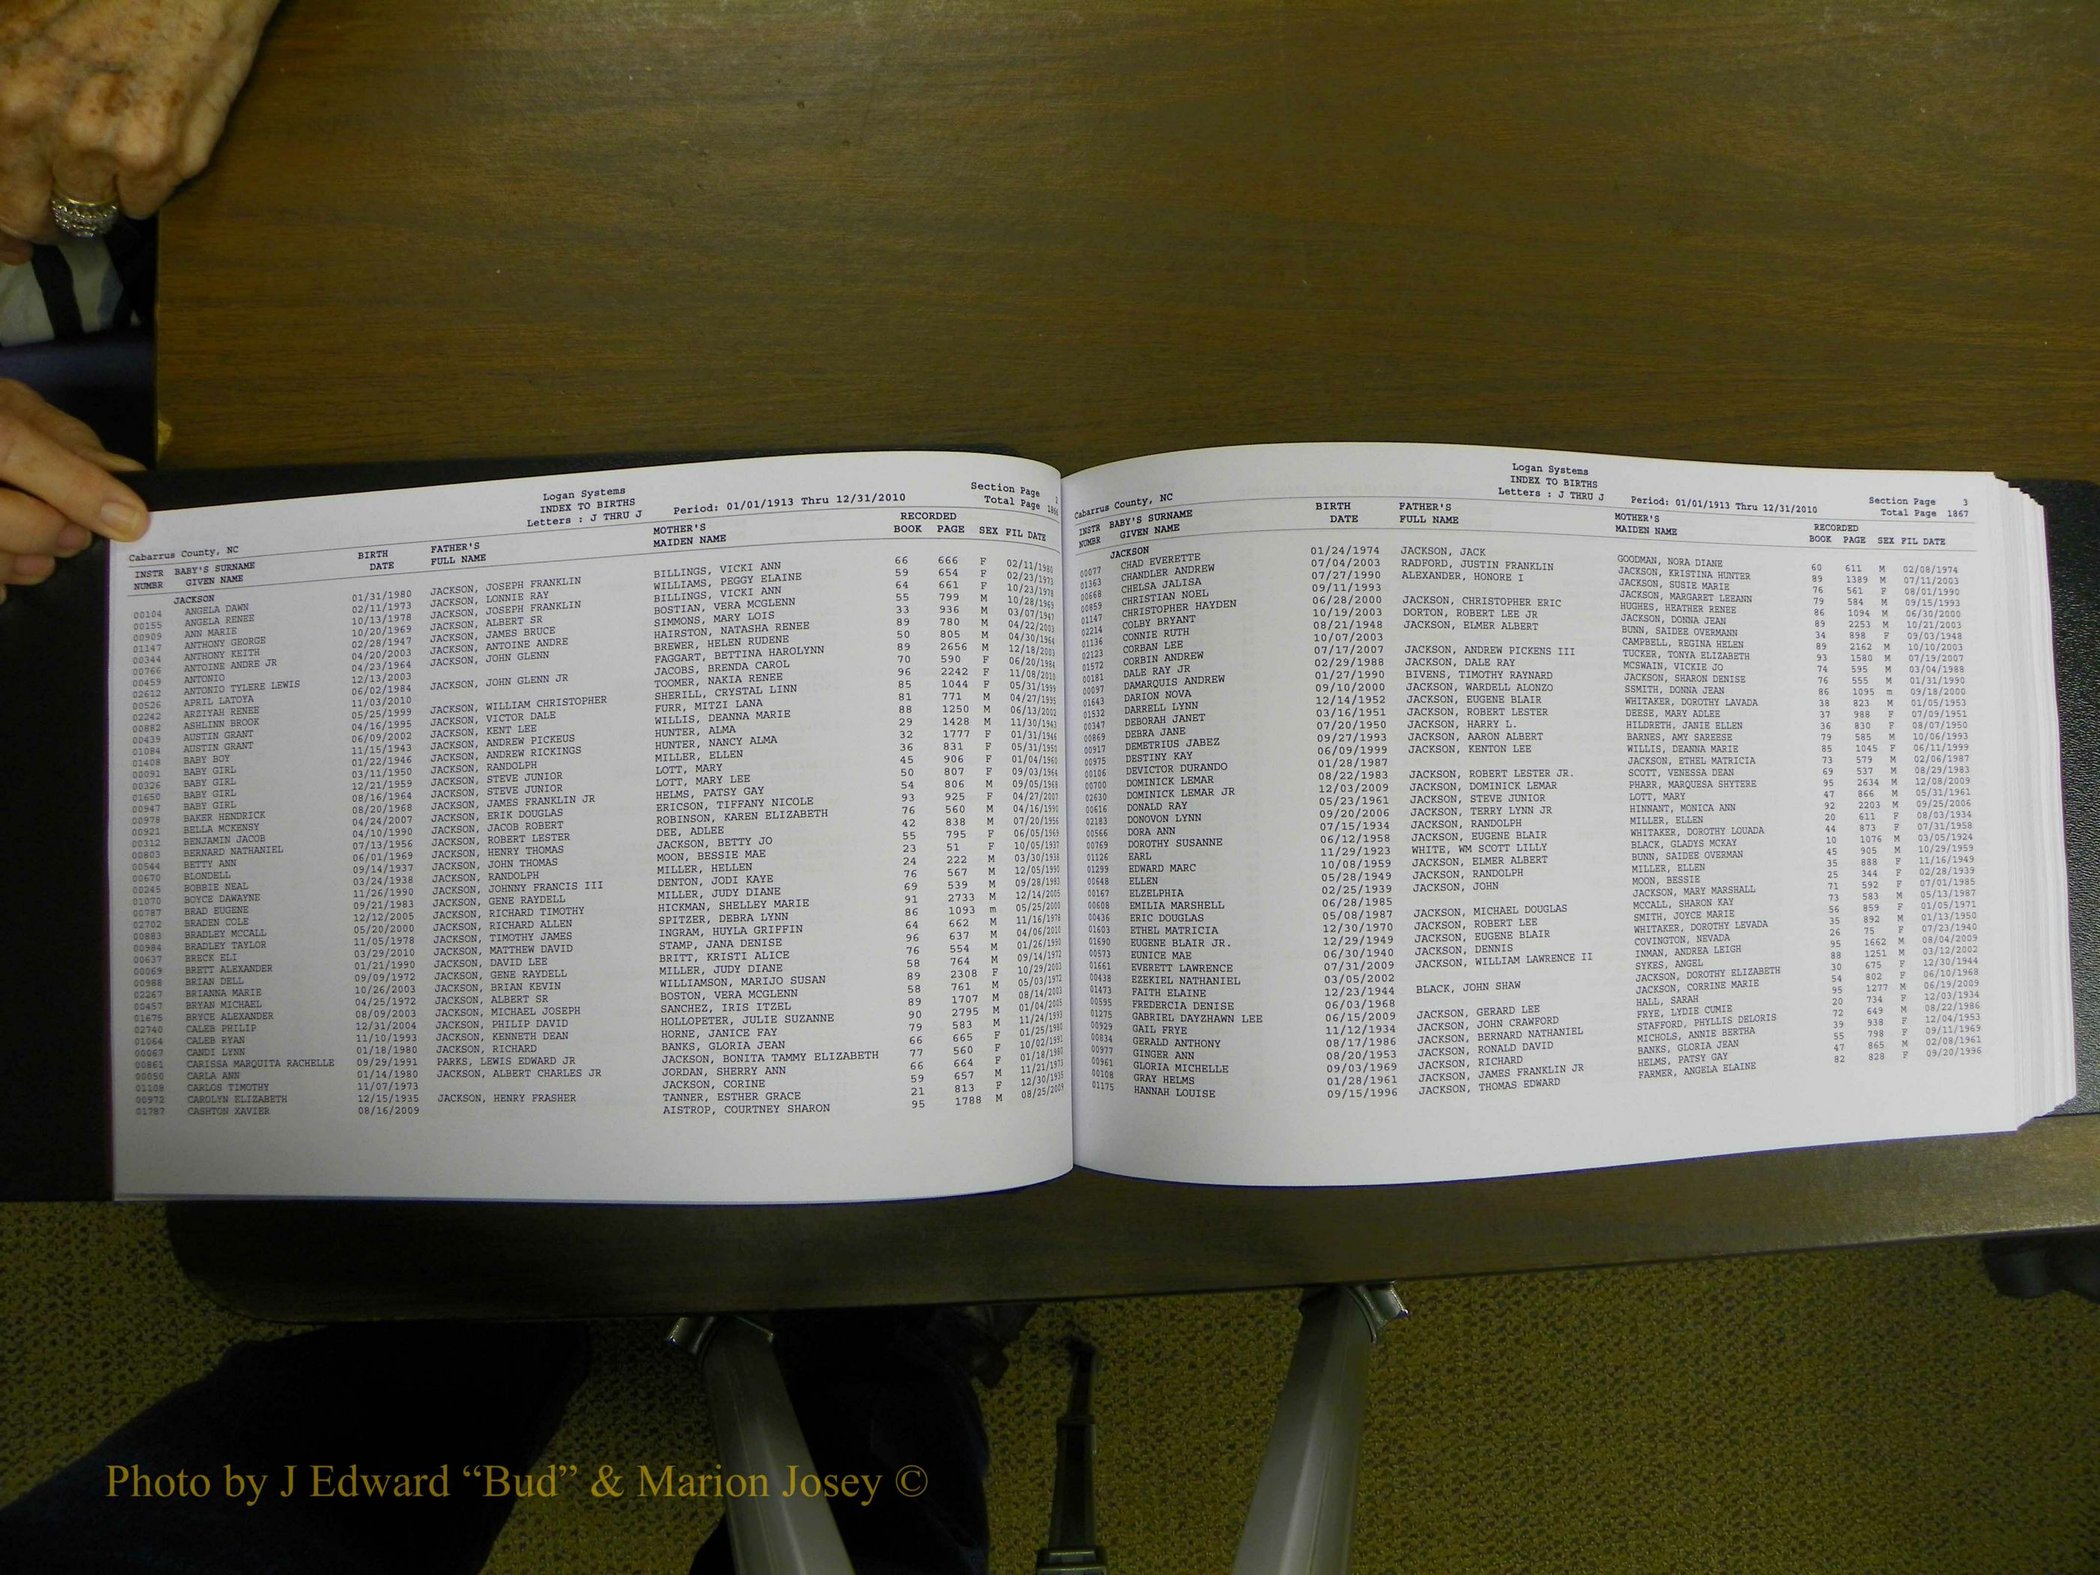 Logan Systems
INDEX TO BIRTHS
Letters : J THRU J Period: 01/01/1913 Thru 12/31/2010
Section Page 2
Total Page 1866
Cabarrus County, NC
INSTR BABY'S SURNAME BIRTH FATHER'S MOTHER'S RECORDED
NUMBR GIVEN NAME DATE FULL NAME MAIDEN NAME BOOK PAGE SEX FIL DATE
JACKSON
00104 ANGELA DAWN 01/31/1980 JACKSON, JOSEPH FRANKLIN BILLINGS, VICKI ANN 66 666 F 02/11/1980
00155 ANGELA RENEE 02/11/1973 JACKSON, LONNIE RAY WILLIAMS, PEGGY ELAINE 59 654 F 02/23/1973
00909 ANN MARIE 10/13/1978 JACKSON, JOSEPH FRANKLIN BILLINGS, VICKI ANN 64 661 F 10/23/1978
01147 ANTHONY GEORGE 10/20/1969 JACKSON, ALBERT SR BOSTIAN, VERA MCGLENN 55 799 M 10/28/1969
00344 ANTHONY KEITH 02/28/1947 JACKSON, JAMES BRUCE SIMMONS, MARY LOIS 33 936 M 03/07/1947
00766 ANTOINE ANDRE JR 04/20/2003 JACKSON, ANTOINE ANDRE HAIRSTON, NATASHA RENEE 89 780 M 04/22/2003
00459 ANTONIO 04/23/1964 JACKSON, JOHN GLENN BREWER, HELEN RUDENE 50 805 M 04/30/1964
02612 ANTONIO TYLERE LEWIS 12/13/2003 FAGGART, BETTINA HAROLYNN 89 2656 M 12/18/2003
00526 APRIL LATOYA 06/02/1984 JACKSON, JOHN GLENN JR JACOBS, BRENDA CAROL 70 590 F 06/20/1984
02242 ARZIYAH RENEE 11/03/2010 TOOMER, NAKIA RENEE 96 2242 F 11/08/2010
00882 ASHLINN BROOK 05/25/1999 JACKSON, WILLIAM CHRISTOPHER SHERILL, CRYSTAL LINN 85 1044 F 05/31/1999
00439 AUSTIN GRANT 04/16/1995 JACKSON, VICTOR DALE FURR, MITZI LANA 81 771 M 04/27/1995
01084 AUSTIN GRANT 06/09/2002 JACKSON, KENT LEE WILLIS, DEANNA MARIE 88 1250 M 06/13/2002
01408 BABY BOY 11/15/1943 JACKSON, ANDREW PICKEUS HUNTER, ALMA 29 1428 M 11/30/1943
00091 BABY GIRL 01/22/1946 JACKSON, ANDREW RICKINGS HUNTER, NANCY ALMA 32 1777 F 01/31/1946
00326 BABY GIRL 03/11/1950 JACKSON, RANDOLPH MILLER, ELLEN 36 831 F 05/31/1950
01650 BABY GIRL 12/21/1959 JACKSON, STEVE JUNIOR LOTT, MARY 45 906 F 01/04/1960
00947 BABY GIRL 08/16/1964 JACKSON, STEVE JUNIOR LOTT, MARY LEE 50 807 F 09/03/1964
00978 BAKER HENDRICK 08/20/1968 JACKSON, JAMES FRANKLIN JR HELMS, PATSY GAY 54 806 M 09/05/1968
00921 BELLA MCKENSY 04/24/2007 JACKSON, ERIK DOUGLAS ERICSON, TIFFANY NICOLE 93 925 F 04/27/2007
00312 BENJAMIN JACOB 04/10/1990 JACKSON, JACOB ROBERT ROBINSON, KAREN ELIZABETH 76 560 M 04/16/1990
00803 BERNARD NATHANIEL 07/13/1956 JACKSON, ROBERT LESTER DEE, ADLEE 42 838 M 07/20/1956
00544 BETTY ANN 06/01/1969 JACKSON, HENRY THOMAS JACKSON, BETTY JO 55 795 F 06/05/1969
00670 BLONDELL 09/14/1937 JACKSON, JOHN THOMAS MOON, BESSIE MAE 23 51 F 10/05/1937
00245 BOBBIE NEAL 03/24/1938 JACKSON, RANDOLPH MILLER, HELLEN 24 222 M 03/30/1938
01070 BOYCE DAWAYNE 11/26/1990 JACKSON, JOHNNY FRANCIS III DENTON, JODI KAYE 76 567 M 12/05/1990
00787 BRAD EUGENE 09/21/1983 JACKSON, GENE RAYDELL MILLER, JUDY DIANE 69 539 M 09/28/1983
02702 BRADEN COLE 12/12/2005 JACKSON, RICHARD TIMOTHY HICKMAN, SHELLEY MARIE 91 2733 M 12/14/2005
00883 BRADLEY MCCALL 05/20/2000 JACKSON, RICHARD ALLEN SPITZER, DEBRA LYNN 86 1093 m 05/25/2000
00984 BRADLEY TAYLOR 11/05/1978 JACKSON, TIMOTHY JAMES INGRAM, HUYLA GRIFFIN 64 662 M 11/16/1978
00637 BRECK ELI 03/29/2010 JACKSON, MATTHEW DAVID STAMP, JANA DENISE 96 637 M 04/06/2010
00069 BRETT ALEXANDER 01/21/1990 JACKSON, DAVID LEE BRITT, KRISTI ALICE 76 554 M 01/26/1990
00988 BRIAN DELL 09/09/1972 JACKSON, GENE RAYDELL MILLER, JUDY DIANE 58 764 M 09/14/1972
02267 BRIANNA MARIE 10/26/2003 JACKSON, BRIAN KEVIN WILLIAMSON, MARIJO SUSAN 89 2308 F 10/29/2003
00457 BRYAN MICHAEL 04/25/1972 JACKSON, ALBERT SR BOSTON, VERA MCGLENN 58 761 M 05/03/1972
01675 BRYCE ALEXANDER 08/09/2003 JACKSON, MICHAEL JOSEPH SANCHEZ, IRIS ITZEL 89 1707 M 08/14/2003
02740 CALEB PHILIP 12/31/2004 JACKSON, PHILIP DAVID HOLLOPETER, JULIE SUZANNE 90 2795 M 01/04/2005
01064 CALEB RYAN 11/10/1993 JACKSON, KENNETH DEAN HORNE, JANICE FAY 79 583 M 11/24/1993
00067 CANDI LYNN 01/18/1980 JACKSON, RICHARD BANKS, GLORIA JEAN 66 665 F 01/25/1980
00861 CARISSA MARQUITA RACHELLE 09/29/1991 PARKS, LEWIS EDWARD JR JACKSON, BONITA TAMMY ELIZABETH 77 560 F 10/02/1991
00050 CARLA ANN 01/14/1980 JACKSON, ALBERT CHARLES JR JORDAN, SHERRY ANN 66 664 F 01/18/1980
01108 CARLOS TIMOTHY 11/07/1973 JACKSON, CORINE 59 657 M 11/21/1973
00972 CAROLYN ELIZABETH 12/15/1935 JACKSON, HENRY FRASHER TANNER, ESTHER GRACE 21 813 F 12/30/1935
01787 CASHTON XAVIER 08/16/2009 AISTROP, COURTNEY SHARON 95 1788 M 08/25/2009
Logan Systems
INDEX TO BIRTHS
Letters : J THRU J Period: 01/01/1913 Thru 12/31/2010
Section Page 3
Total Page 1867
Cabarrus County, NC
INSTR BABY'S SURNAME BIRTH FATHER'S MOTHER'S RECORDED
NUMBR GIVEN NAME DATE FULL NAME MAIDEN NAME BOOK PAGE SEX FIL DATE
JACKSON
00077 CHAD EVERETTE 01/24/1974 JACKSON, JACK GOODMAN, NORA DIANE 60 611 M 02/08/1974
01363 CHANDLER ANDREW 07/04/2003 RADFORD, JUSTIN FRANKLIN JACKSON, KRISTINA HUNTER 89 1389 M 07/11/2003
00668 CHELSA JALISA 07/27/1990 ALEXANDER, HONORE I JACKSON, SUSIE MARIE 76 561 F 08/01/1990
00859 CHRISTIAN NOEL 09/11/1993 JACKSON, MARGARET LEEANN 79 584 M 09/15/1993
01147 CHRISTOPHER HAYDEN 06/28/2000 JACKSON, CHRISTOPHER ERIC HUGHES, HEATHER RENEE 86 1094 M 06/30/2000
02214 COLBY BRYANT 10/19/2003 DORTON, ROBERT LEE JR JACKSON, DONNA JEAN 89 2253 M 10/21/2003
01136 CONNIE RUTH 08/21/1948 JACKSON, ELMER ALBERT BUNN, SAIDEE OVERMANN 34 898 F 09/03/1948
02123 CORBAN LEE 10/07/2003 CAMPBELL, REGINA HELEN 89 2162 M 10/10/2003
01572 CORBIN ANDREW 07/17/2007 JACKSON, ANDREW PICKENS III TUCKER, TONYA ELIZABETH 93 1580 M 07/19/2007
00181 DALE RAY JR 02/29/1988 JACKSON, DALE RAY MCSWAIN, VICKIE JO 74 595 M 03/04/1988
00097 DAMARQUIS ANDREW 01/27/1990 BIVENS, TIMOTHY RAYNARD JACKSON, SHARON DENISE 76 555 M 01/31/1990
01643 DARION NOVA 09/10/2000 JACKSON, WARDELL ALONZO SSMITH, DONNA JEAN 86 1095 m 09/18/2000
01532 DARRELL LYNN 12/14/1952 JACKSON, EUGENE BLAIR WHITAKER, DOROTHY LAVADA 38 823 M 01/05/1953
00347 DEBORAH JANET 03/16/1951 JACKSON, ROBERT LESTER DEESE, MARY ADLEE 37 988 F 07/09/1951
00869 DEBRA JANE 07/20/1950 JACKSON, HARRY L. HILDRETH, JANIE ELLEN 36 830 F 08/07/1950
00917 DEMETRIUS JABEZ 09/27/1993 JACKSON, AARON ALBERT BARNES, AMY SAREESE 79 585 M 10/06/1993
00975 DESTINY KAY 06/09/1999 JACKSON, KENTON LEE WILLIS, DEANNA MARIE 85 1045 F 06/11/1999
00106 DEVICTOR DURANDO 01/28/1987 JACKSON, ETHEL MATRICIA 73 579 M 02/06/1987
00700 DOMINICK LEMAR 08/22/1983 JACKSON, ROBERT LESTER JR. SCOTT, VENESSA DEAN 69 537 M 08/29/1983
02630 DOMINICK LEMAR JR 12/03/2009 JACKSON, DOMINICK LEMAR PHARR, MARQUESA SHYTERE 95 2634 M 12/08/2009
00616 DONALD RAY 05/23/1961 JACKSON, STEVE JUNIOR LOTT, MARY 47 866 M 05/31/1961
02183 DONOVON LYNN 09/20/2006 JACKSON, TERRY LYNN JR HINNANT, MONICA ANN 92 2203 M 09/25/2006
00566 DORA ANN 07/15/1934 JACKSON, RANDOLPH MILLER, ELLEN 20 611 F 08/03/1934
00769 DOROTHY SUSANNE 06/12/1958 JACKSON, EUGENE BLAIR WHITAKER, DOROTHY LOUADA 44 873 F 07/31/1958
01126 EARL 11/29/1923 WHITE, WM SCOTT LILLY BLACK, GLADYS MCKAY 10 1076 M 03/05/1924
01299 EDWARD MARC 10/08/1959 JACKSON, ELMER ALBERT BUNN, SAIDEE OVERMAN 45 905 M 10/29/1959
00648 ELLEN 05/28/1949 JACKSON, RANDOLPH MILLER, ELLEN 35 888 F 11/16/1949
00167 ELZELPHIA 02/25/1939 JACKSON, JOHN MOON, BESSIE 25 344 F 02/28/1939
00608 EMILIA MARSHELL 06/28/1985 JACKSON, MARY MARSHALL 71 592 F 07/01/1985
00436 ERIC DOUGLAS 05/08/1987 JACKSON, MICHAEL DOUGLAS MCCALL, SHARON KAY 73 583 M 05/13/1987
01603 ETHEL MATRICIA 12/30/1970 JACKSON, ROBERT LEE SMITH, JOYCE MARIE 56 859 F 01/05/1971
01690 EUGENE BLAIR JR. 12/29/1949 JACKSON, EUGENE BLAIR WHITAKER, DOROTHY LEVADA 35 892 M 01/13/1950
00573 EUNICE MAE 06/30/1940 JACKSON, DENNIS COVINGTON, NEVADA 26 75 F 07/23/1940
01661 EVERETT LAWRENCE 07/31/2009 JACKSON, WILLIAM LAWRENCE II INMAN, ANDREA LEIGH 95 1662 M 08/04/2009
00438 EZEKIEL NATHANIEL 03/05/2002 SYKES, ANGEL 88 1251 M 03/12/2002
01473 FAITH ELAINE 12/23/1944 BLACK, JOHN SHAW JACKSON, DOROTHY ELIZABETH 30 675 F 12/30/1944
00595 FREDERCIA DENISE 06/03/1968 JACKSON, CORRINE MARIE 54 802 F 06/10/1968
01275 GABRIEL DAYZHAWN LEE 06/15/2009 JACKSON, GERARD LEE HALL, SARAH 95 1277 M 06/19/2009
00929 GAIL FRYE 11/12/1934 JACKSON, JOHN CRAWFORD FRYE, LYDIE CUMIE 20 734 F 12/03/1934
00834 GERALD ANTHONY 08/17/1986 JACKSON, BERNARD NATHANIEL STAFFORD, PHYLLIS DELORIS 72 649 M 08/22/1986
00977 GINGER ANN 08/20/1953 JACKSON, RONALD DAVID MICHOLS, ANNIE BERTHA 39 938 F 12/04/1953
00961 GLORIA MICHELLE 09/03/1969 JACKSON, RICHARD BANKS, GLORIA JEAN 55 798 F 09/11/1969
00108 GRAY HELMS 01/28/1961 JACKSON, JAMES FRANKLIN JR HELMS, PATSY GAY 47 865 M 02/08/1961
01175 HANNAH LOUISE 09/15/1996 JACKSON, THOMAS EDWARD FARMER, ANGELA ELAINE 82 828 F 09/20/1996
Photo by J Edward “Bud” & Marion Josey ©